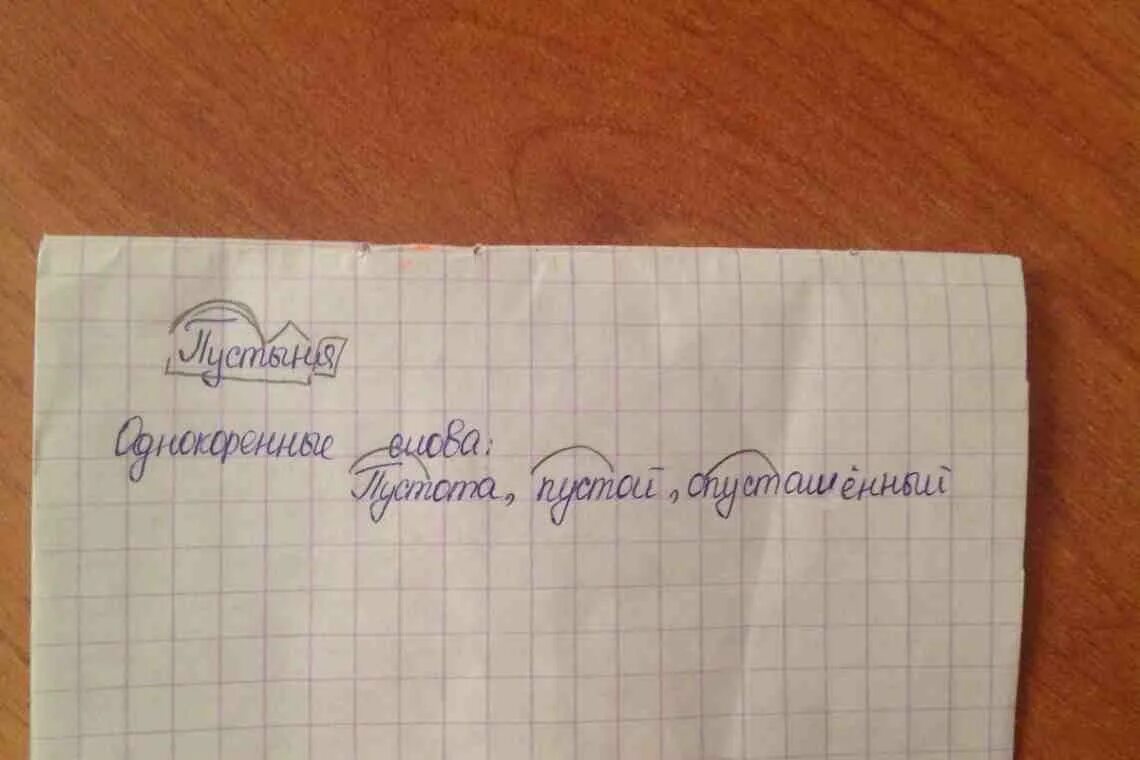 Пустыня
Однокоренные слова:
Пустота, пустой, опусташённый